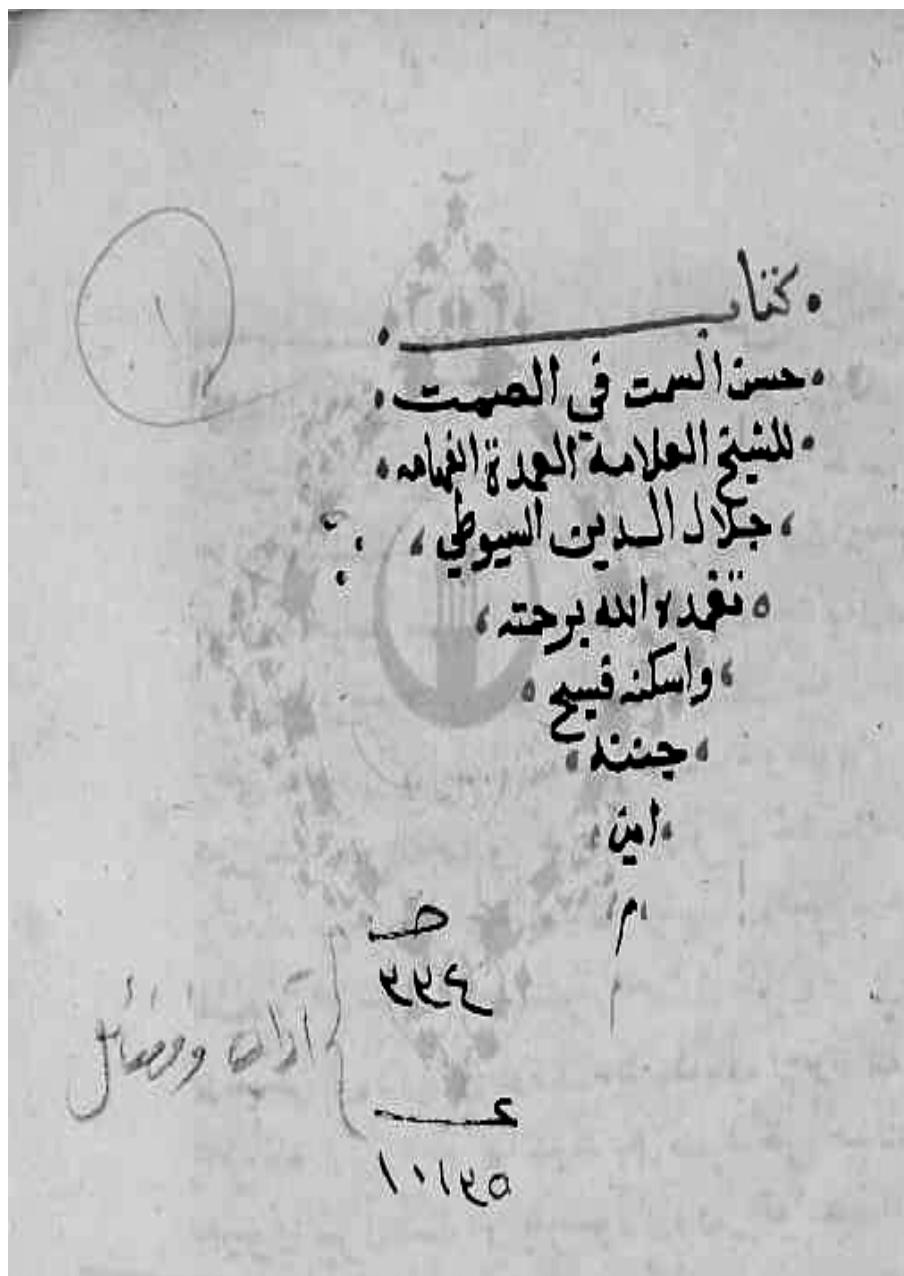 كتاب
حسن السمت في الصمت
للشيخ العلامه العمدة الفهامه
جلال الدين السيوطي
تغمده الله برحمته
واسكنه فسيح
جنته
امين
م
١
خـ
عـ
آداب وفضائل